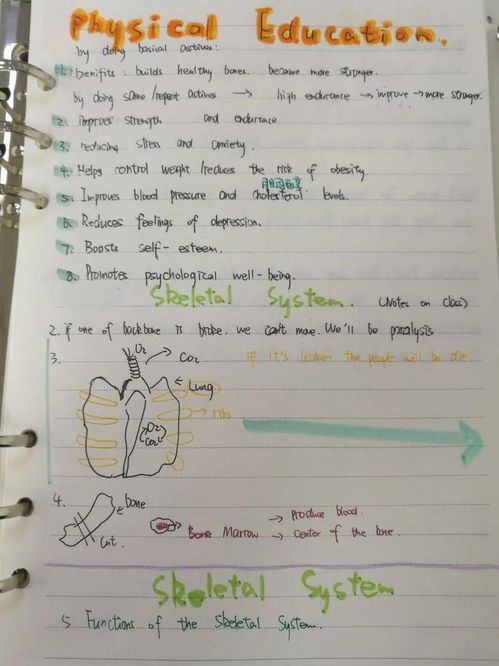 Physical Education.
by doing basical actives:
1. benifits: builds healthy bones. become more stronger.
by doing same/repeat actives → high endurance → improve → more stronger.
2. improves strength and endurance
3. reducing stress and anxiety.
4. Helps control weight/reduces the risk of obesity.
胆固醇
5. Improves blood pressure and cholesterol levels.
6. Reduces feelings of depression.
7. Boosts self-esteem.
8. Promotes psychological well-being.
Skeletal System. (Notes on class)
2. if one of backbone is broke. we can't move. We'll be paralysis
3. O2 → CO2 if it's broken the people will be die
← Lung
→ ribs
O2
CO2
4. ← bone
Cut.
→ Bone Marrow → Produce blood.
→ center of the bone.
Skeletal System
5 Functions of the Skeletal System.